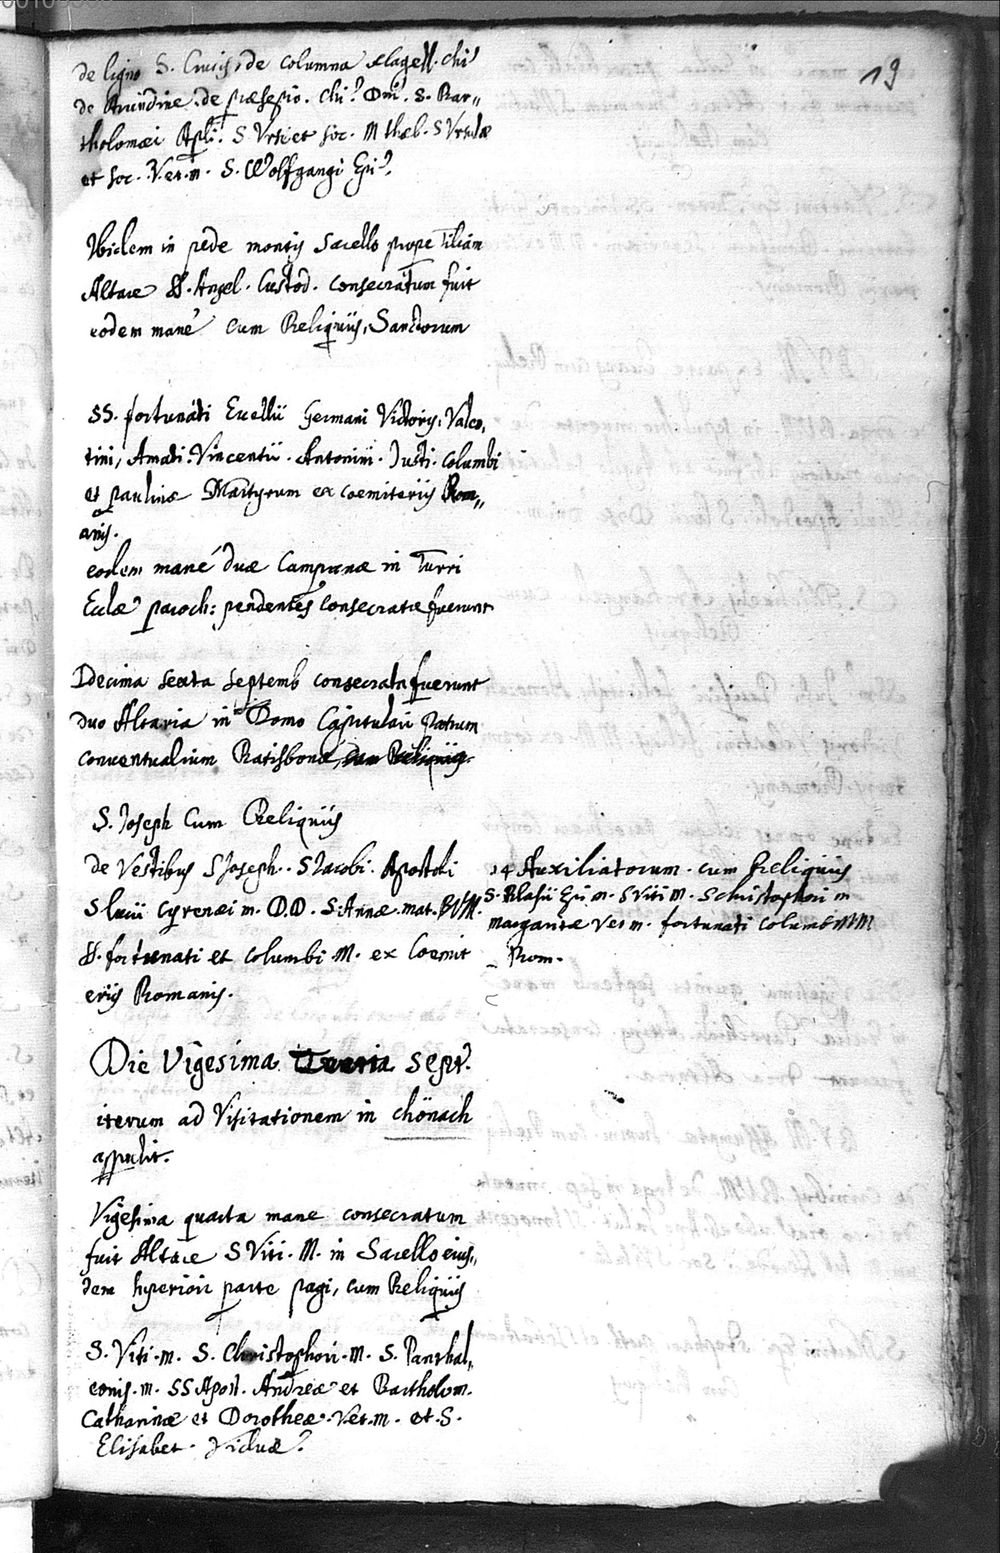 19
de ligno S. Crucis, de columna flagell. Chi
de Arundine, de præsepio. Chi? Dni. S. Bar„
tholomæi Apli. S Ursi et soc. M Theb. S Ursulæ
et soc. V. et. m. S. Wolfgangi Epi?
Ibidem in pede montis Sacello prope Tiliam
Altare SS. Angel. Custod. consecratum fuit
eodem mane cum Reliquiis, Sanctorum
SS. fortunati Euellii Germani Victoris, Valen,
tini, Amati. Vincentii. Antonini. Justi. columbi
et paulinæ Martyrum ex coemiteriis Rom„
anis.
eodem mane duæ Campanæ in Turri
Eclæ paroch: pendentes consecratæ fuerunt
Decima sexta septemb consecrata fuerunt
duo Altaria in Domo Capitulari Patrum
conventualium Ratisbonæ, cum Reliquiis.
S. Joseph Cum Reliquiis
de Vestibus S Joseph. S Jacobi. Apostoli
S lucii cyrenæi m. D.D. S Annæ. mat. BVM.
SS. fortunati et columbi M. ex Coemit
eriis Romanis.
14 Auxiliatorum. cum Reliquiis
S. Blasii Epi m. S Viti M. S christophori m
margaritæ Ve m. fortunati Columbi MM
Rom.
Die Vigesima Sept.
iterum ad Visitationem in chönach
appulit.
Vigesima quarta mane consecratum
fuit Altare S Viti. M. in Sacello eius„
dem superiori parte pagi, cum Reliquiis
S. Viti. m. S. Christophori. M. S. Panthal„
eonis. m. SS Apost. Andreæ et Bartholom.
Catharinæ et Dorotheæ. Ve. m. et. S.
Elisabet. Viduæ.